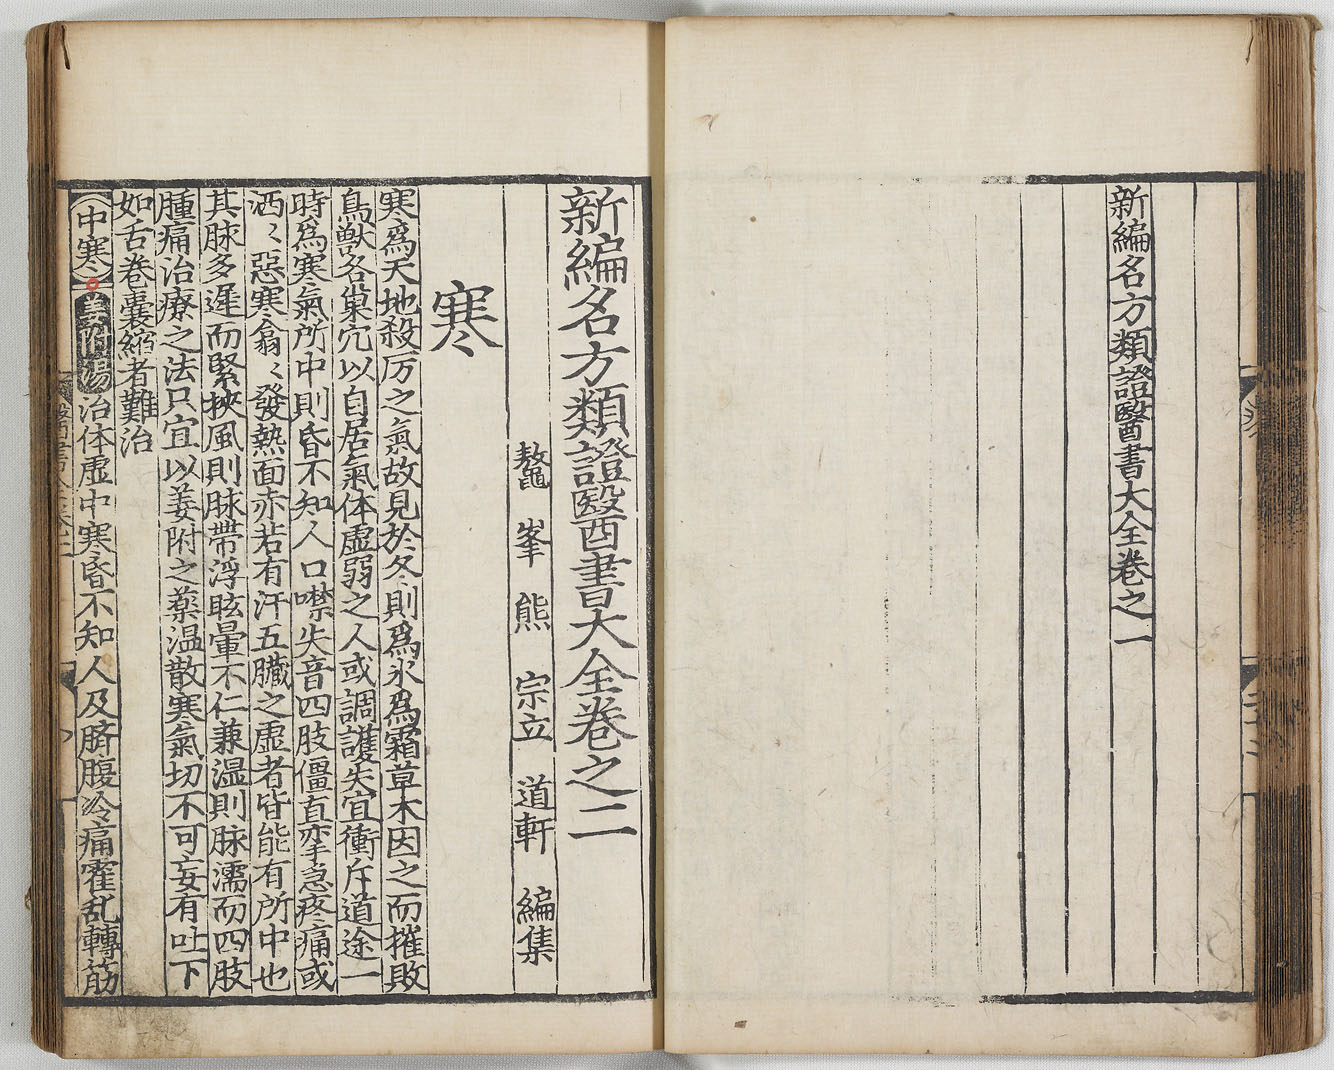 新編名方類證醫書大全卷之一
新編名方類證醫書大全卷之二
鼇峯熊宗立道軒編集
寒
寒爲天地殺厉之氣故見於冬則爲氷爲霜草木因之而摧敗
鳥獸各巢穴以自居氣体虚弱之人或調護失宜衝斥道途一
時爲寒氣所中則昏不知人口噤失音四肢僵直挛急疼痛或
洒〻惡寒翕〻發熱面赤若有汗五臟之虚者皆能有所中也
其脉多遲而緊挾風則脉帶浮眩暈不仁兼湿則脉濡而四肢
腫痛治療之法只宜以姜附之藥温散寒氣切不可妄有吐下
如舌卷囊縮者難治
中寒 姜附湯 治体虚中寒昏不知人及臍腹冷痛霍乱轉筋